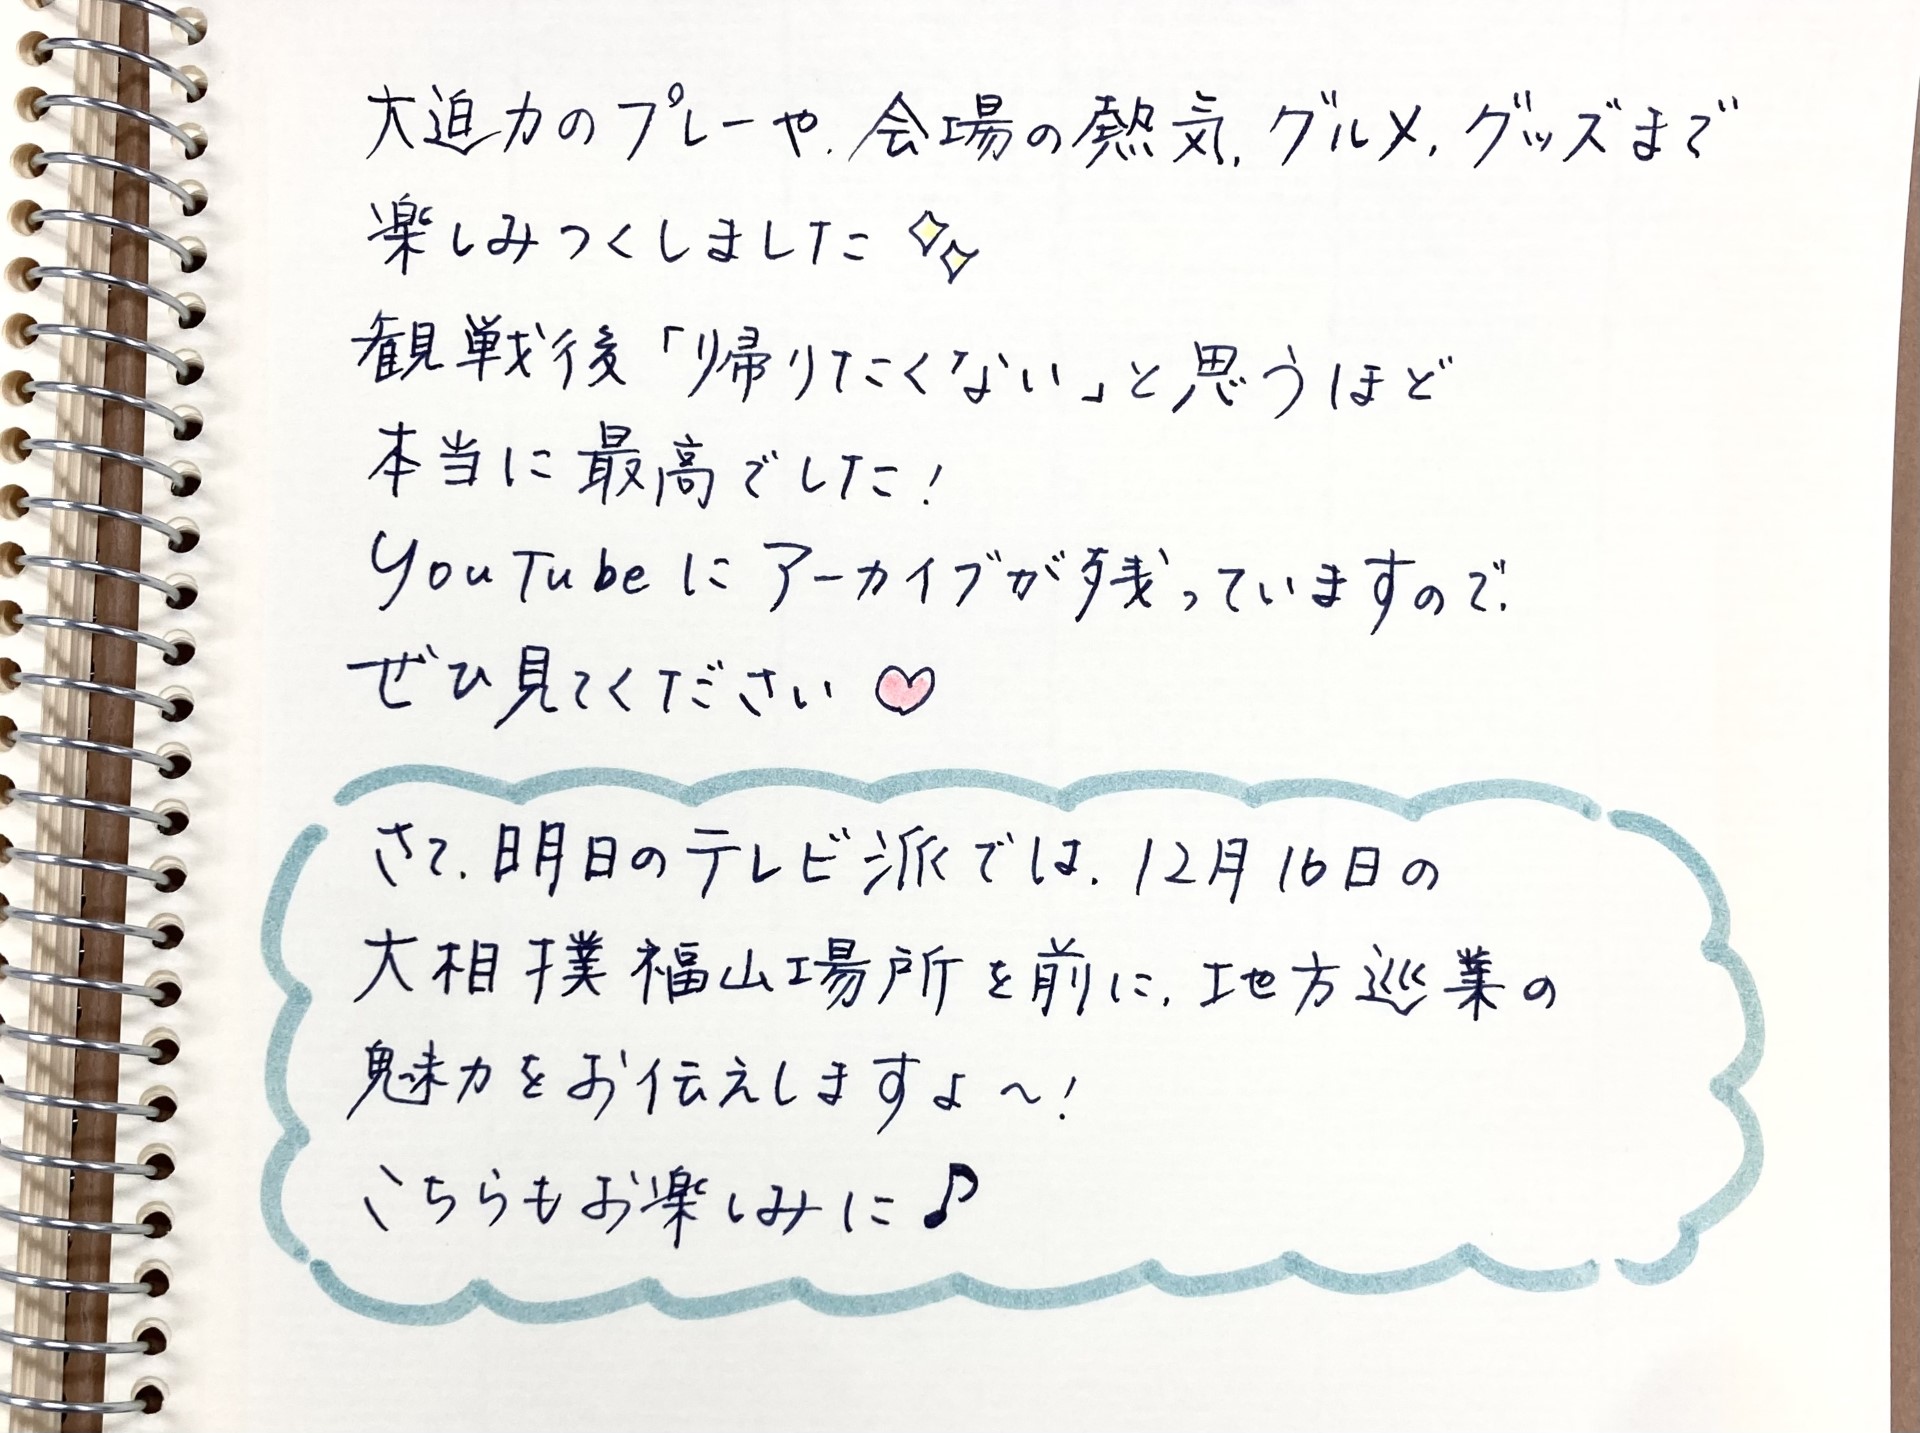 大迫力のプレーや、会場の熱気、グルメ、グッズまで
楽しみつくしました
観戦後「帰りたくない」と思うほど
本当に最高でした！
YouTubeにアーカイブが残っていますので、
ぜひ見てください♡
さて、明日のテレビ派では、12月16日の
大相撲福山場所を前に、地方巡業の
魅力をお伝えしますよ〜！
こちらもお楽しみに♪